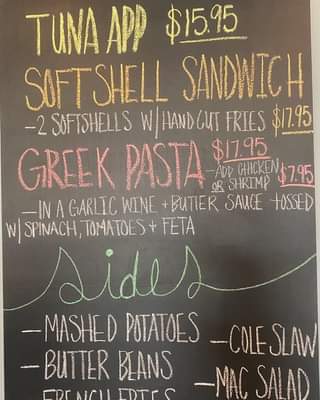 TUNA APP $15.95
SOFTSHELL SANDWICH
-2 SOFTSHELLS W/ HAND CUT FRIES $17.95
GREEK PASTA $17.95
-ADD CHICKEN OR SHRIMP $7.95
-IN A GARLIC WINE + BUTTER SAUCE TOSSED
W/ SPINACH, TOMATOES + FETA
Sides
-MASHED POTATOES
-COLE SLAW
-BUTTER BEANS
-MAC SALAD
FRENCH FRIES